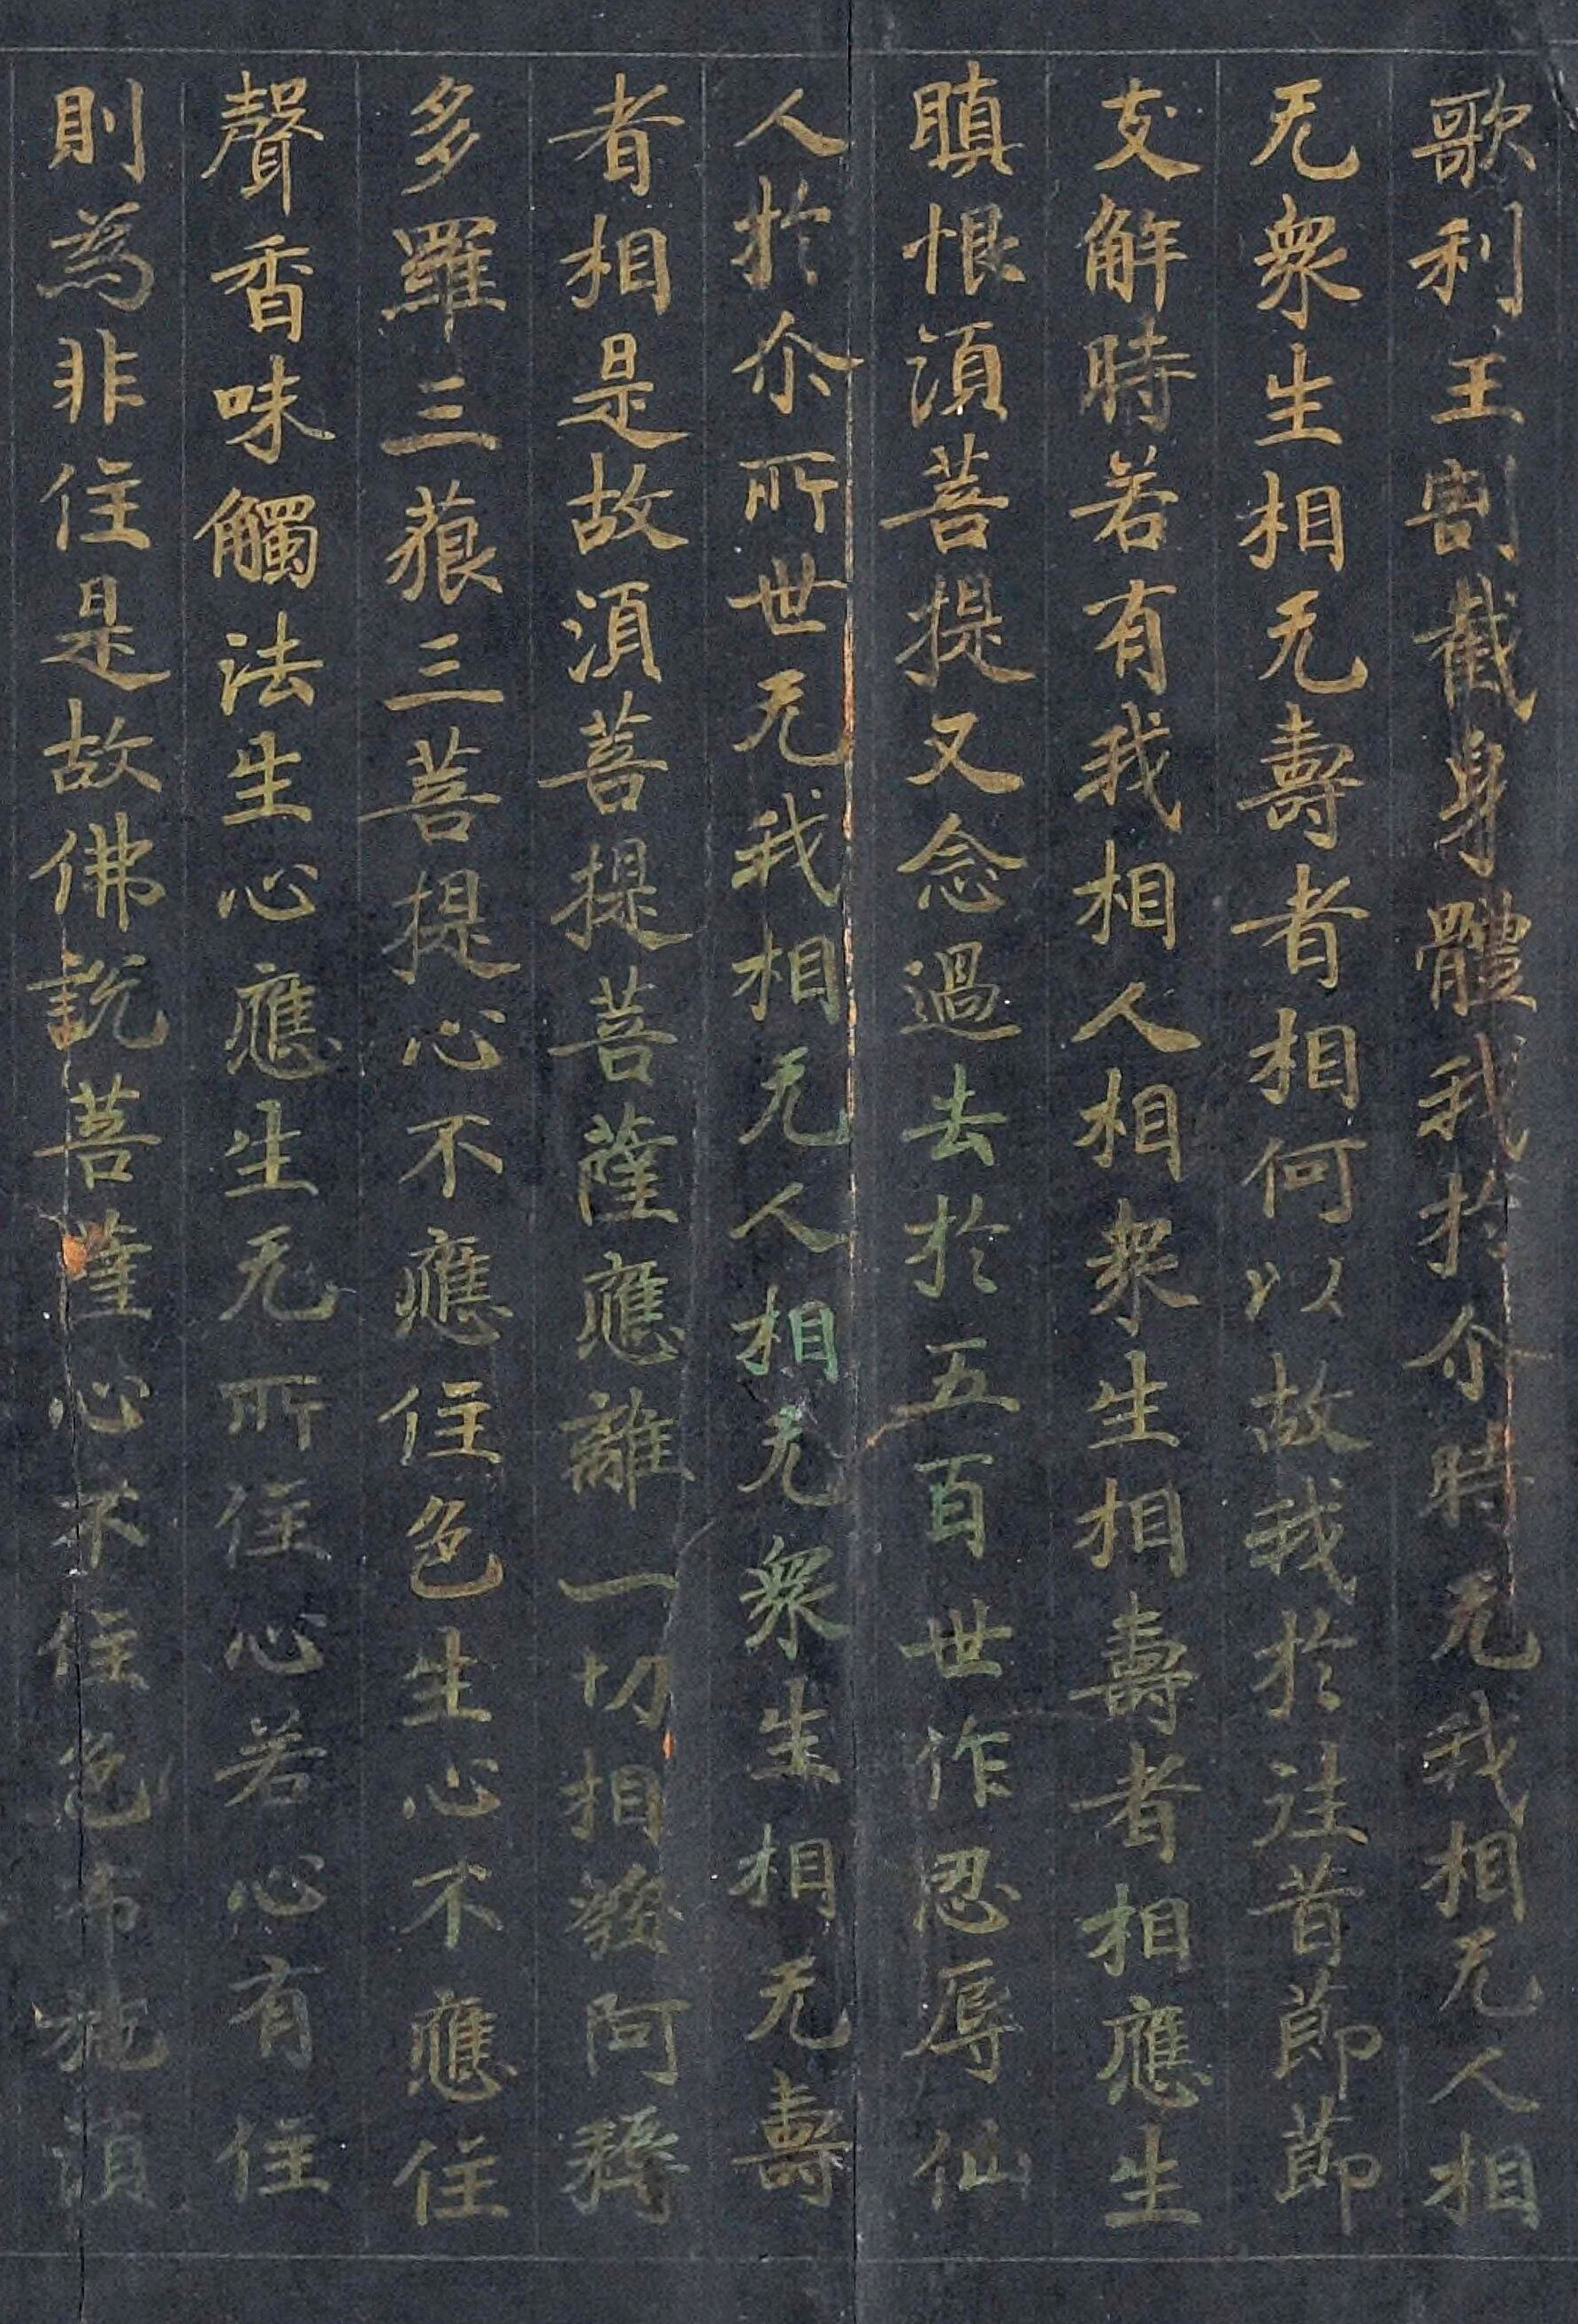 歌利王割截身體我於尒時无我相无人相
无衆生相无壽者相何以故我於往昔節節
支解時若有我相人相衆生相壽者相應生
瞋恨須菩提又念過去於五百世作忍辱仙
人於尒所世无我相无人相无衆生相无壽
者相是故須菩提菩薩應離一切相發阿耨
多羅三藐三菩提心不應住色生心不應住
聲香味觸法生心應生无所住心若心有住
則為非住是故佛說菩薩心不住色布施須